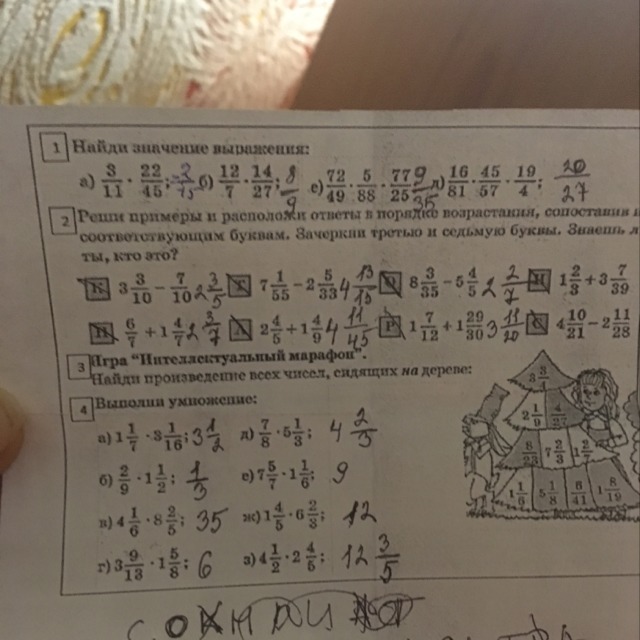 1 Найди значение выражения:
а) 3/11 · 22/45; 2/15 б) 12/7 · 14/27; 8/9 с) 72/49 · 5/88 · 77/25 9/35 д) 16/81 · 45/57 · 19/4; 20/27
2 Реши примеры и расположи ответы в порядке возрастания, сопоставив и
соответствующим буквам. Зачеркни третью и седьмую буквы. Знаешь л
ты, кто это?
3 3/10 − 7/10 2 3/5 7 1/55 − 2 5/33 4 13/15 8 3/35 − 5 4/5 2 2/7 1 2/3 + 3 7/39
6/7 + 1 4/7 2 3/7 2 4/5 + 1 4/9 4 11/45 Р 1 7/12 + 1 29/30 3 11/20 4 10/21 − 2 11/28
3 Игра "Интеллектуальный марафон".
Найди произведение всех чисел, сидящих на дереве:
4 Выполни умножение:
а) 1 1/7 · 3 1/16; 3 1/2 д) 7/8 · 5 1/3; 4 2/3
б) 2/9 · 1 1/2; 1/3 е) 7 5/7 · 1 1/6; 9
в) 4 1/6 · 8 2/5; 35 ж) 1 4/5 · 6 2/3; 12
г) 3 9/13 · 1 5/8; 6 з) 4 1/2 · 2 4/5; 12 3/5
2 1/9
7 2/3
1 1/6 5 1/8 6/41 1 8/19